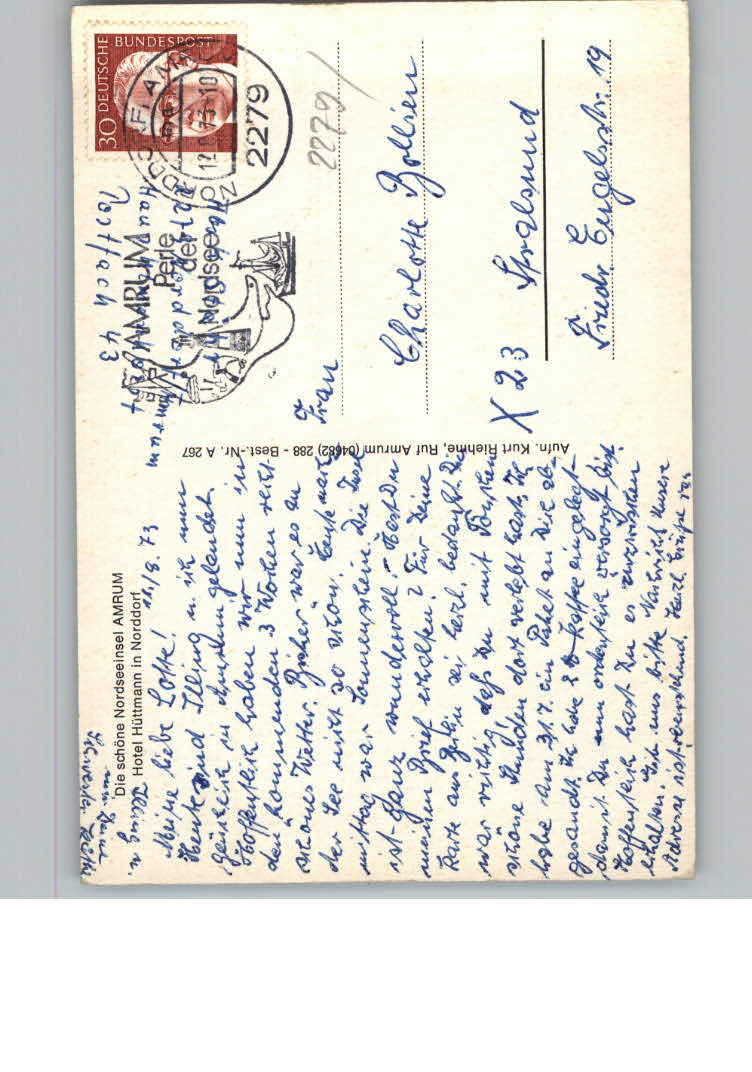 Die schöne Nordseeinsel AMRUM
Hotel Hüttmann in Norddorf
11/8. 73
Meine liebe Lotte!
Heute sind Illing u. ich nun
glücklich in Amrum gelandet.
Hoffentlich haben wir nun in
den kommenden 3 Wochen recht
schönes Wetter. Bisher war es an
der See nicht so schön. Heute nach-
mittag war Sonnenschein. Die Insel
ist ganz wundervoll. Hast Du
meinen Brief erhalten? Für Deine
Karte aus sei herzl. bedankt. Das
war richtig daß Du mit
schöne Stunden dort verlebt hast. Ich
habe am 31.7. ein Paket an Dich ab-
gesandt. Ich habe Kaffee eingelegt
damit Du nun ordentlich versorgt bist.
Hoffentlich hast Du es inzwischen
erhalten. Gib uns bitte Nachricht. Unsere
Adresse ist umstehend. Herzl. Grüße von
Illing u.
von Deiner
Schwester
Aufn. Kurt Riehme, Ruf Amrum (04682) 288 - Best.-Nr. A 267
30 DEUTSCHE BUNDESPOST
2279 NORDDORF, AMRUM
12.8.73-10
2279
AMRUM
Perle
der
Nordsee
2279 Norddorf Amrum
Postfach 43
2279
Frau
Charlotte Bollien
X 23 Stralsund
Friedr. Engelsstr. 19